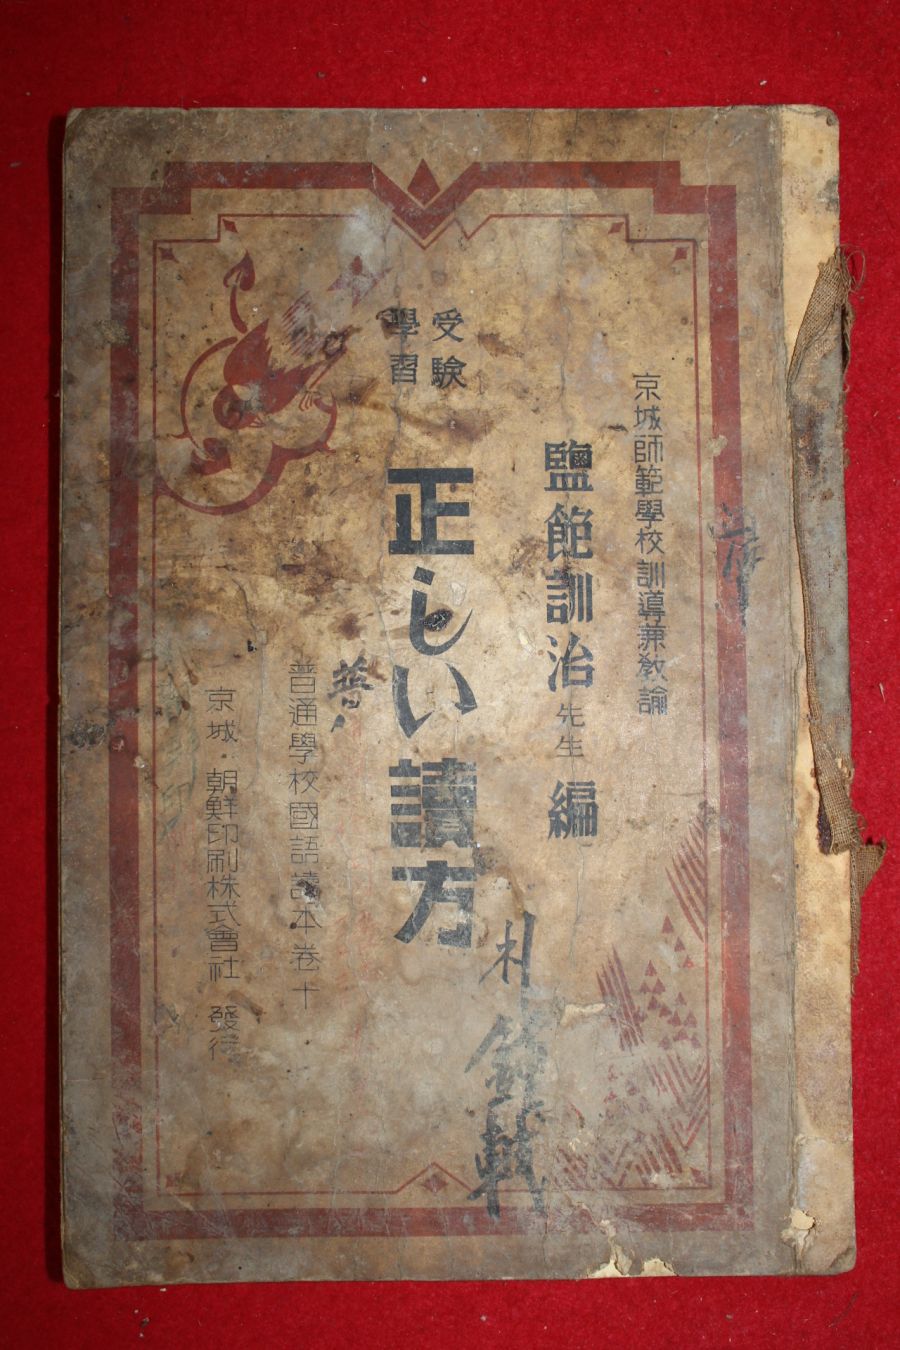 京城師範學校訓導兼教諭
鹽飽訓治先生編
受験
學習
正しい讀方
普通學校國語讀本卷十
京城・朝鮮印刷株式會社 發行